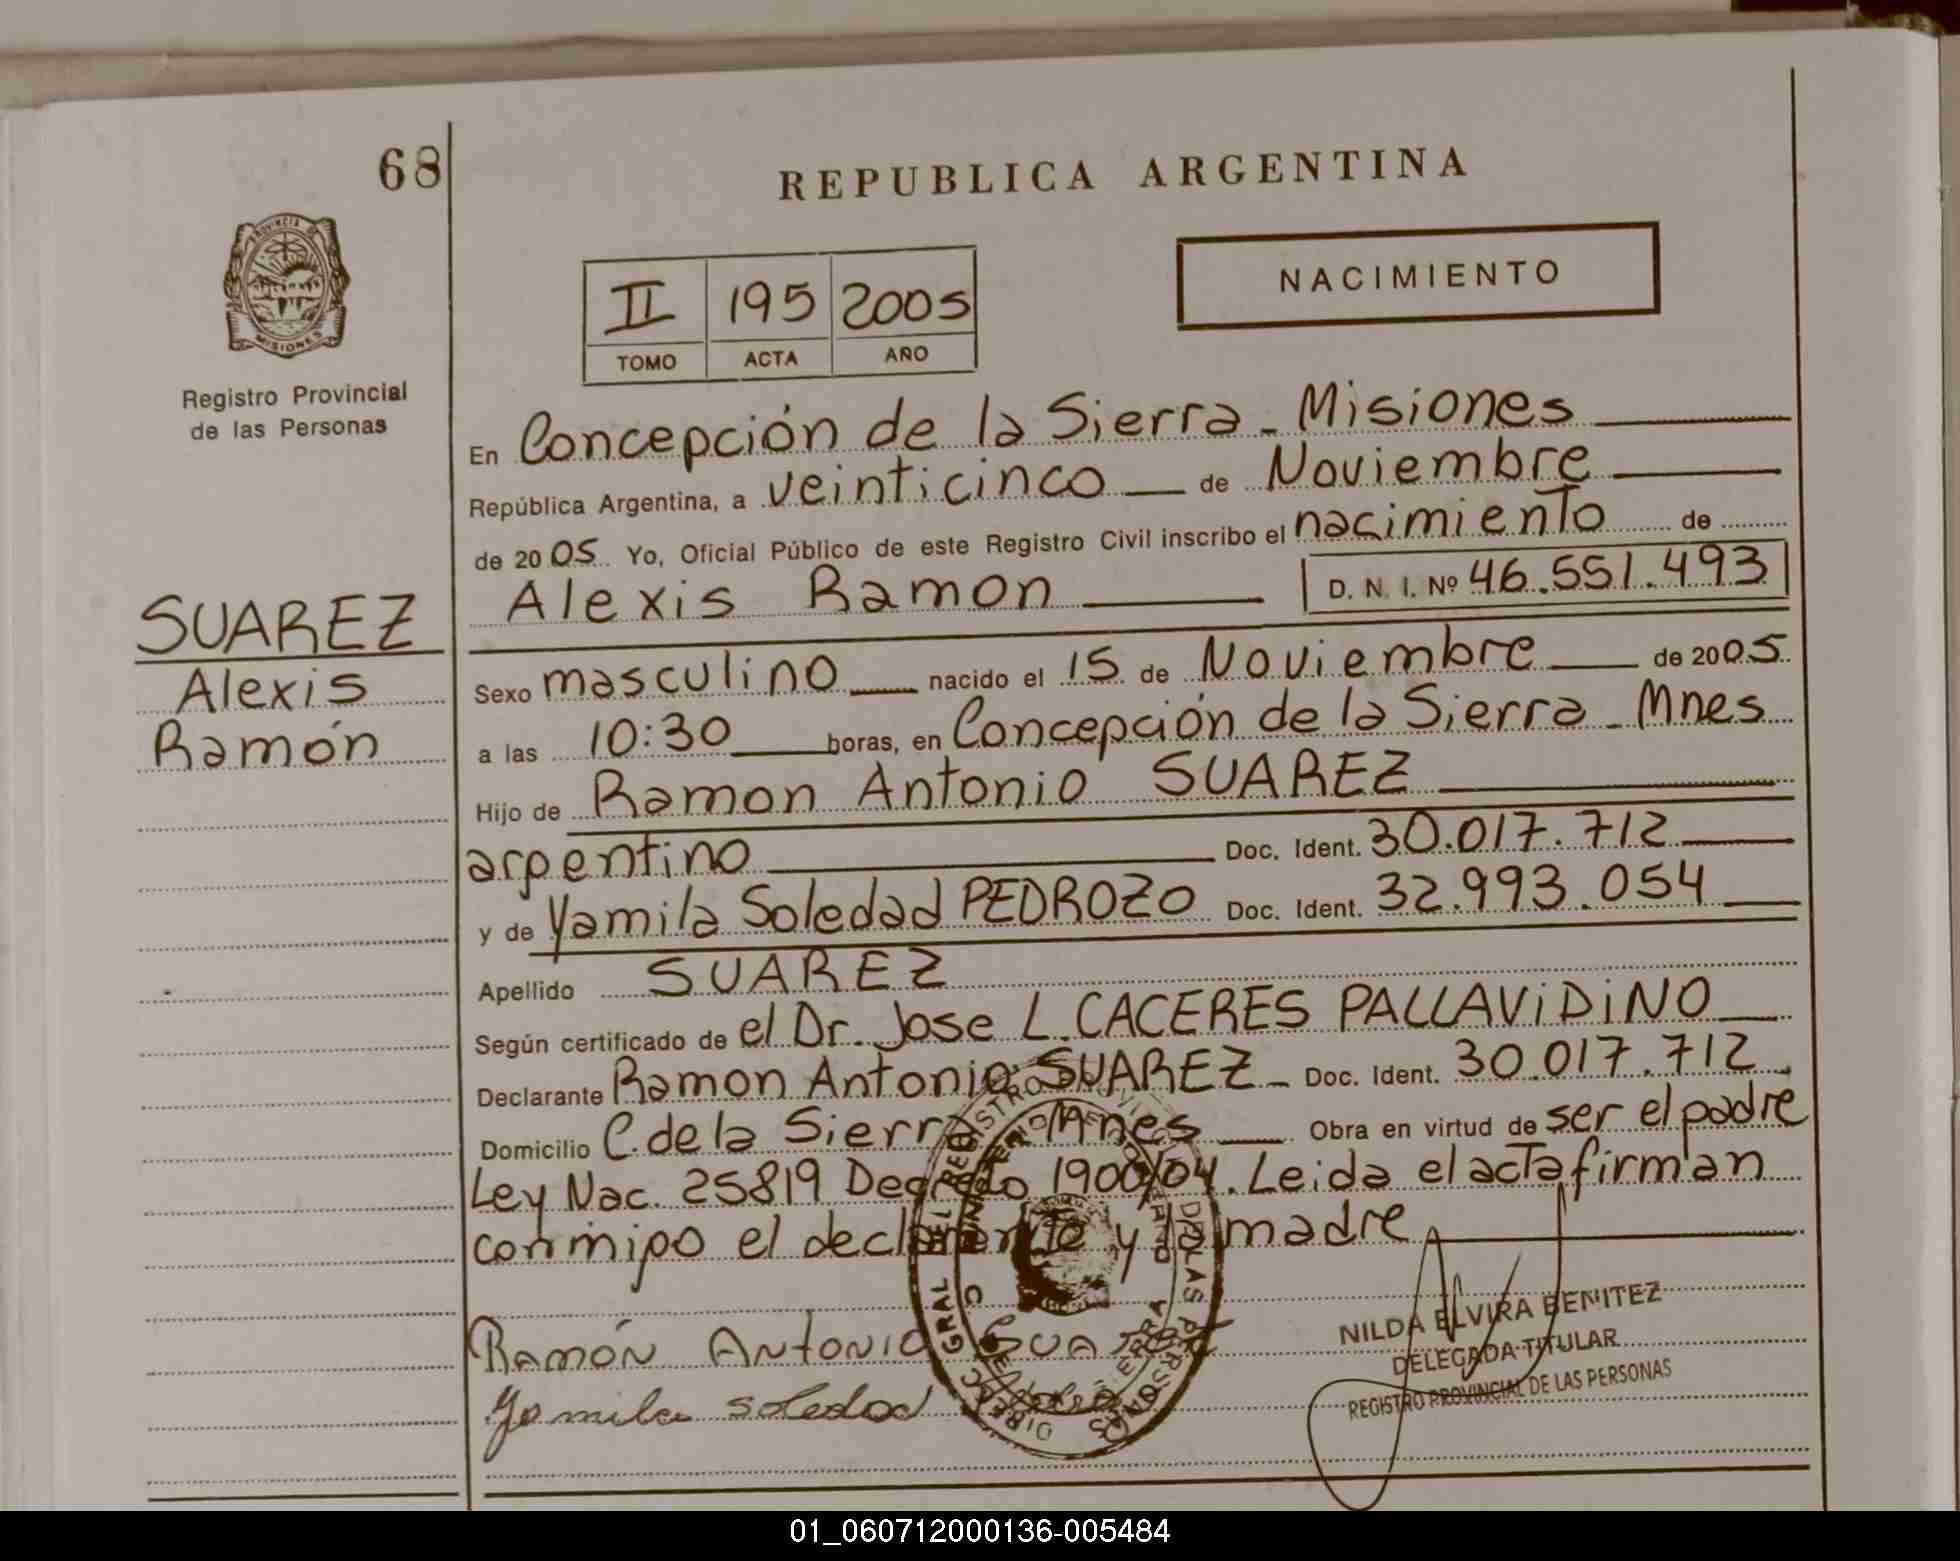 68
REPUBLICA ARGENTINA
PROVINCIA DE
MISIONES
Registro Provincial
de las Personas
II 195 2005
TOMO ACTA AÑO
NACIMIENTO
SUAREZ
Alexis
Ramón
En Concepción de la Sierra - Misiones
República Argentina, a veinticinco de Noviembre
de 2005 Yo, Oficial Público de este Registro Civil inscribo el nacimiento de
Alexis Ramon D. N. I. Nº 46.551.493
Sexo masculino nacido el 15 de Noviembre de 2005
a las 10:30 horas, en Concepción de la Sierra - Mnes
Hijo de Ramon Antonio SUAREZ
argentino Doc. Ident. 30.017.712
y de Yamila Soledad PEDROZO Doc. Ident. 32.993.054
Apellido SUAREZ
Según certificado de el Dr. Jose L. CACERES PALLAViDiNO
Declarante Ramon Antonio SUAREZ - Doc. Ident. 30.017.712
Domicilio C. de la Sierra Mnes Obra en virtud de ser el padre
Ley Nac. 25819 Decreto 1900/04. Leida el acta firman
conmigo el declarante y la madre
Ramón Antonio Suarez
Yamila Soledad
NILDA ELVIRA BENITEZ
DELEGADA TITULAR
REGISTRO PROVINCIAL DE LAS PERSONAS
01_060712000136-005484